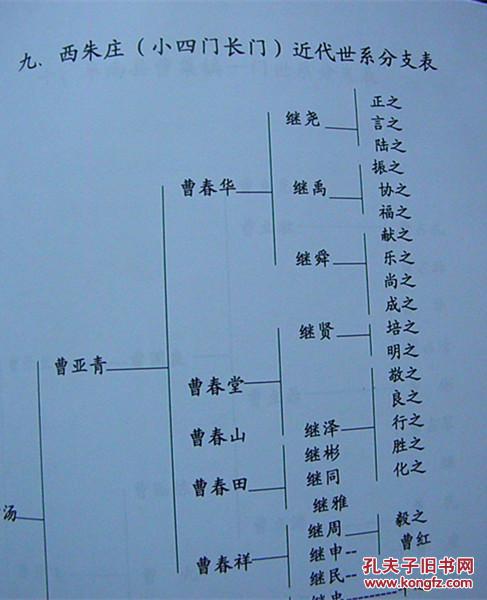 九. 西朱庄（小四门长门）近代世系分支表
正之
继尧
言之
陆之
振之
曹春华
继禹
协之
福之
献之
继舜
乐之
尚之
成之
继贤
培之
明之
曹亚青
敬之
曹春堂
良之
行之
曹春山
继泽
胜之
继彬
化之
曹春田
继同
继雅
汤
继周
毅之
曹红
曹春祥
继申
继民
孔夫子旧书网
www.kongfz.com